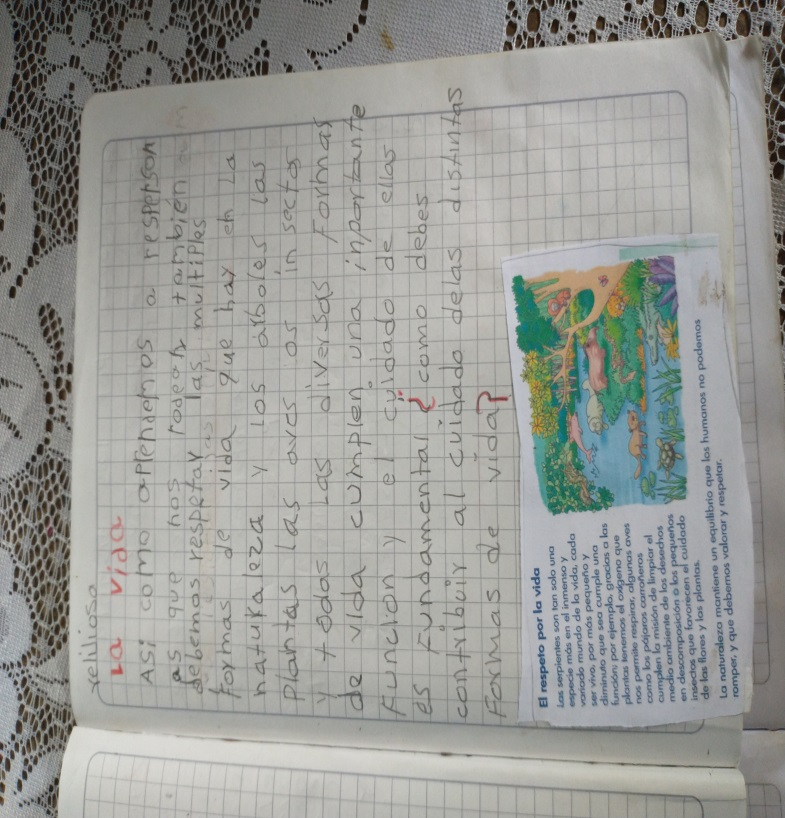 reliliosa
La vida
Asi como aprendemos a resperson
as que nos rodean tambien
debemos respetar las multiples
formas de vida que hay en la
naturaleza y los arboles las
plantas las aves os insectos
y todas las diversas formas
de vida cumplen una inportante
función y el cuidado de ellas
es fundamental ¿ como debes
contribuir al cuidado delas distintas
formas de vida?
El respeto por la vida
Las serpientes son tan solo una
especie más en el inmenso y
variado mundo de la vida, cada
ser vivo, por más pequeño y
diminuto que sea cumple una
función; por ejemplo, gracias a las
plantas tenemos el oxígeno que
nos permite respirar, algunas aves
como los pájaros carroñeros
cumplen la misión de limpiar el
medio ambiente de los desechos
en descomposición o los pequeños
insectos que favorecen el cuidado
de las flores y las plantas.
La naturaleza mantiene un equilibrio que los humanos no podemos
romper, y que debemos valorar y respetar.